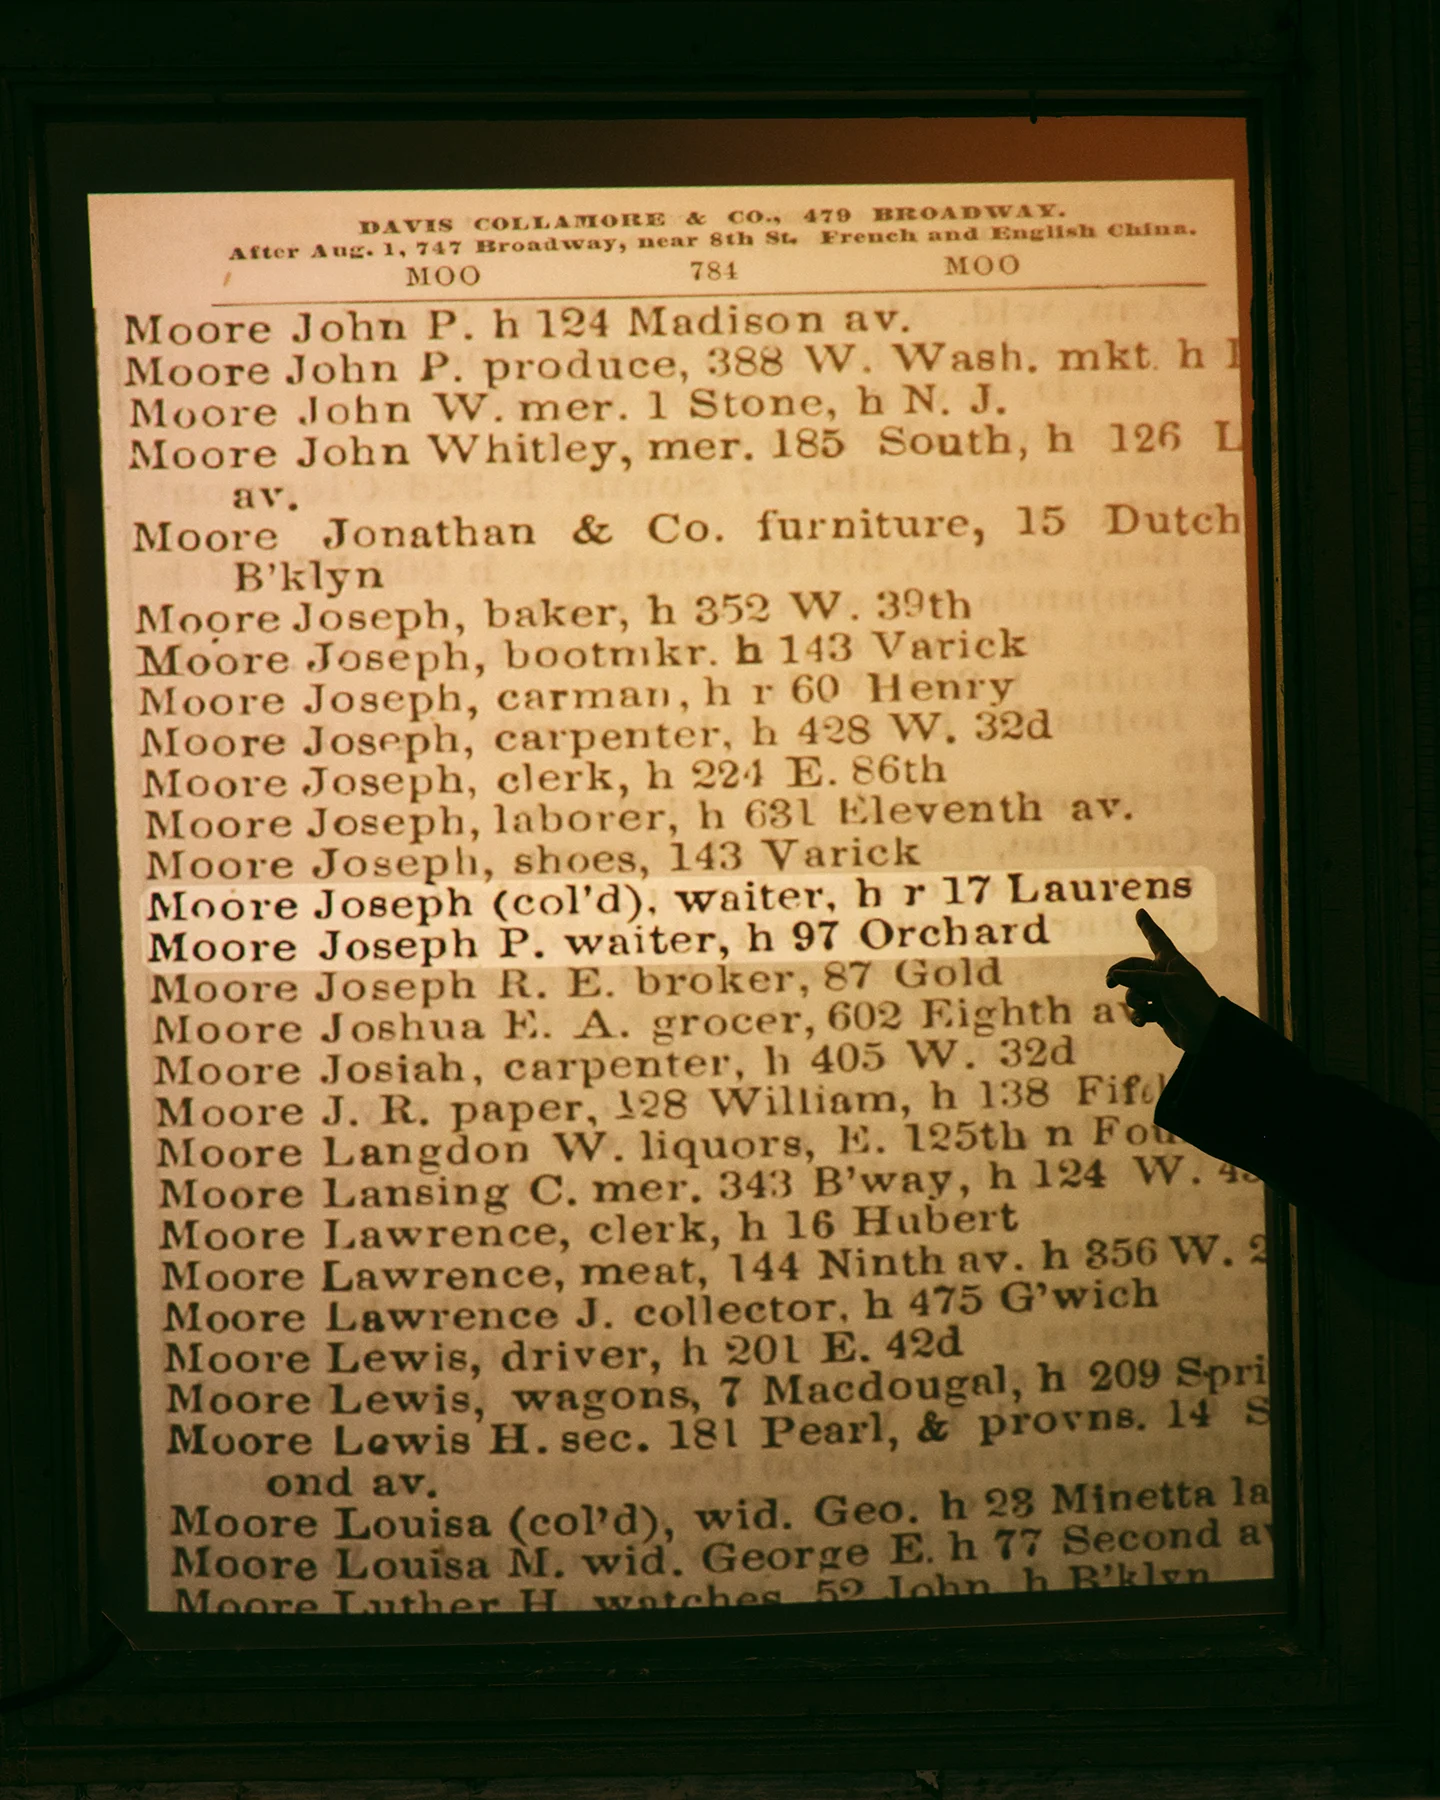 DAVIS COLLAMORE & CO., 479 BROADWAY.
After Aug. 1, 747 Broadway, near 8th St. French and English China.
MOO 784 MOO
Moore John P. h 124 Madison av.
Moore John P. produce, 388 W. Wash. mkt. h
Moore John W. mer. 1 Stone, h N. J.
Moore John Whitley, mer. 185 South, h 126 L
av.
Moore Jonathan & Co. furniture, 15 Dutch
B'klyn
Moore Joseph, baker, h 352 W. 39th
Moore Joseph, bootmkr. h 143 Varick
Moore Joseph, carman, h r 60 Henry
Moore Joseph, carpenter, h 428 W. 32d
Moore Joseph, clerk, h 224 E. 86th
Moore Joseph, laborer, h 631 Eleventh av.
Moore Joseph, shoes, 143 Varick
Moore Joseph (col'd), waiter, h r 17 Laurens
Moore Joseph P. waiter, h 97 Orchard
Moore Joseph R. E. broker, 87 Gold
Moore Joshua E. A. grocer, 602 Eighth av
Moore Josiah, carpenter, h 405 W. 32d
Moore J. R. paper, 128 William, h 138 Fif
Moore Langdon W. liquors, E. 125th n Fou
Moore Lansing C. mer. 343 B'way, h 124 W. 4
Moore Lawrence, clerk, h 16 Hubert
Moore Lawrence, meat, 144 Ninth av. h 356 W. 2
Moore Lawrence J. collector, h 475 G'wich
Moore Lewis, driver, h 201 E. 42d
Moore Lewis, wagons, 7 Macdougal, h 209 Spri
Moore Lewis H. sec. 181 Pearl, & provns. 14 S
ond av.
Moore Louisa (col'd), wid. Geo. h 23 Minetta la
Moore Louisa M. wid. George E. h 77 Second av
Moore Luther H. watches, 52 John, h B'klyn